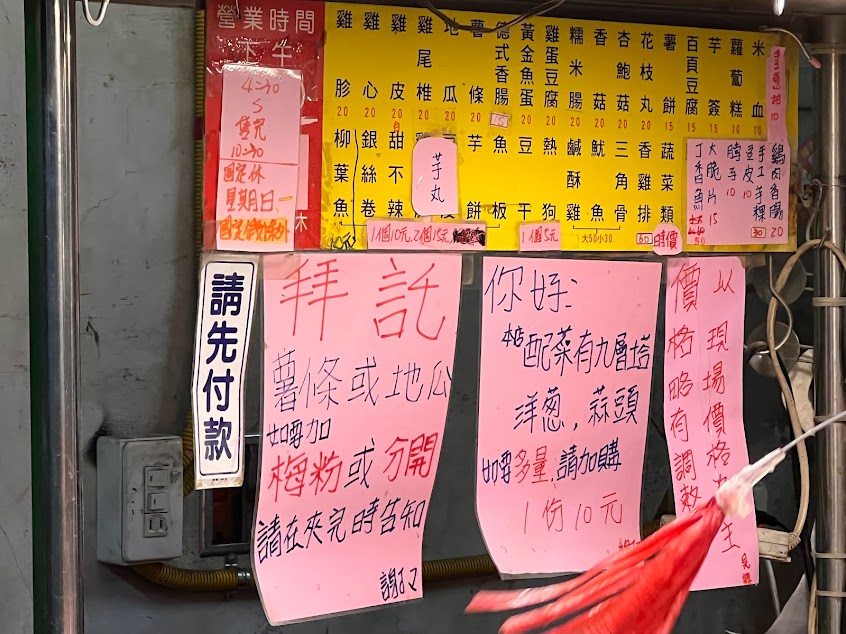 營業時間
下午
4:30
售完
10:30
固定休
星期日
休
雞胗 20
雞心 20
雞皮 20
雞尾椎 20
地瓜 20
薯條 20
德式香腸
黃金魚蛋 20
雞蛋豆腐 20
糯米腸 20
香菇 20
杏鮑菇 20
花枝丸 20
薯餅 20
百頁豆腐 15
芋簽 15
蘿蔔糕 10
米血 10
柳葉魚
銀絲卷
甜不辣
芋丸
芋粿
魚板
豆干
熱狗
鹹酥雞
魷魚
三角骨
香雞排
蔬菜類
大50小30
60
時價
1個10元、2個15元
1個5元
丁香魚
50
大脆片 15
脖子 10
豆皮 10
手工芋粿 30
雞肉香腸 20
請先付款
拜託
薯條或地瓜
如要加
梅粉或分開
請在夾完時告知
謝了
你好:
本店配菜有九層塔
洋蔥,蒜頭
如要多量,請加購
1份10元
以現場價格為主
價格略有調整